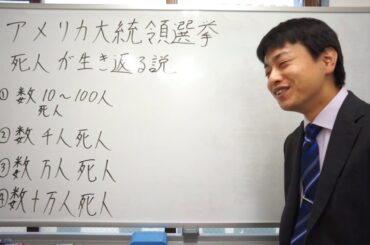 アメリカ大統領選挙
死人が生き返る説
① 数10～100人
死人
② 数千人死人
③ 数万人死人
④ 数十万人死人